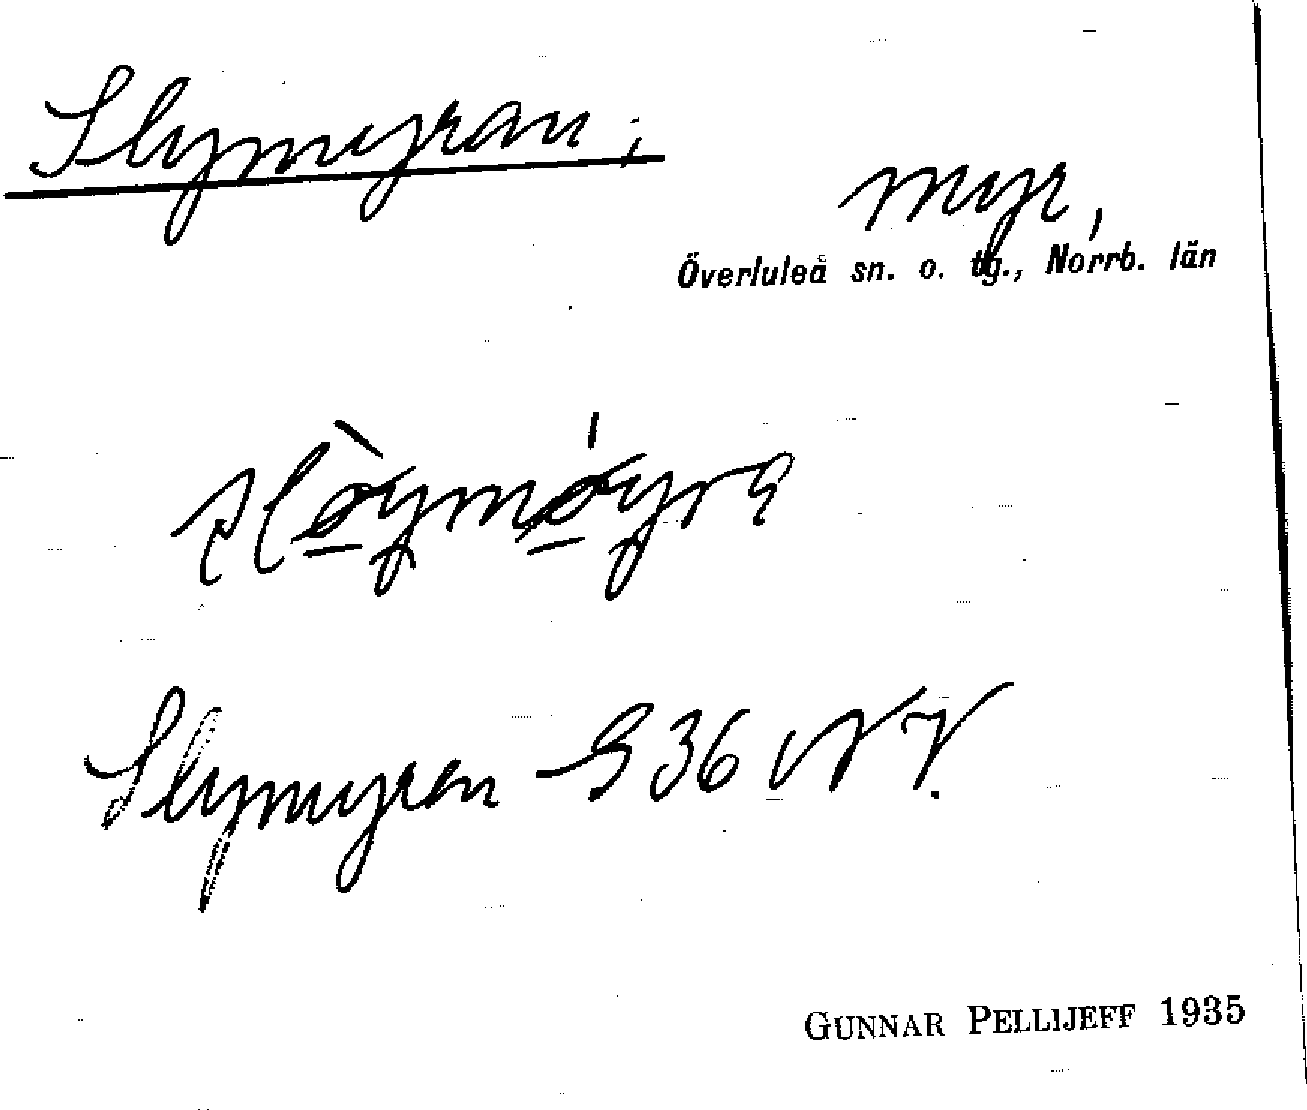 Slymyran;
myr,
Överluleå sn. o. tg., Norrb. län
Slymyran S 36 NV.
GUNNAR PELLIJEFF 1935